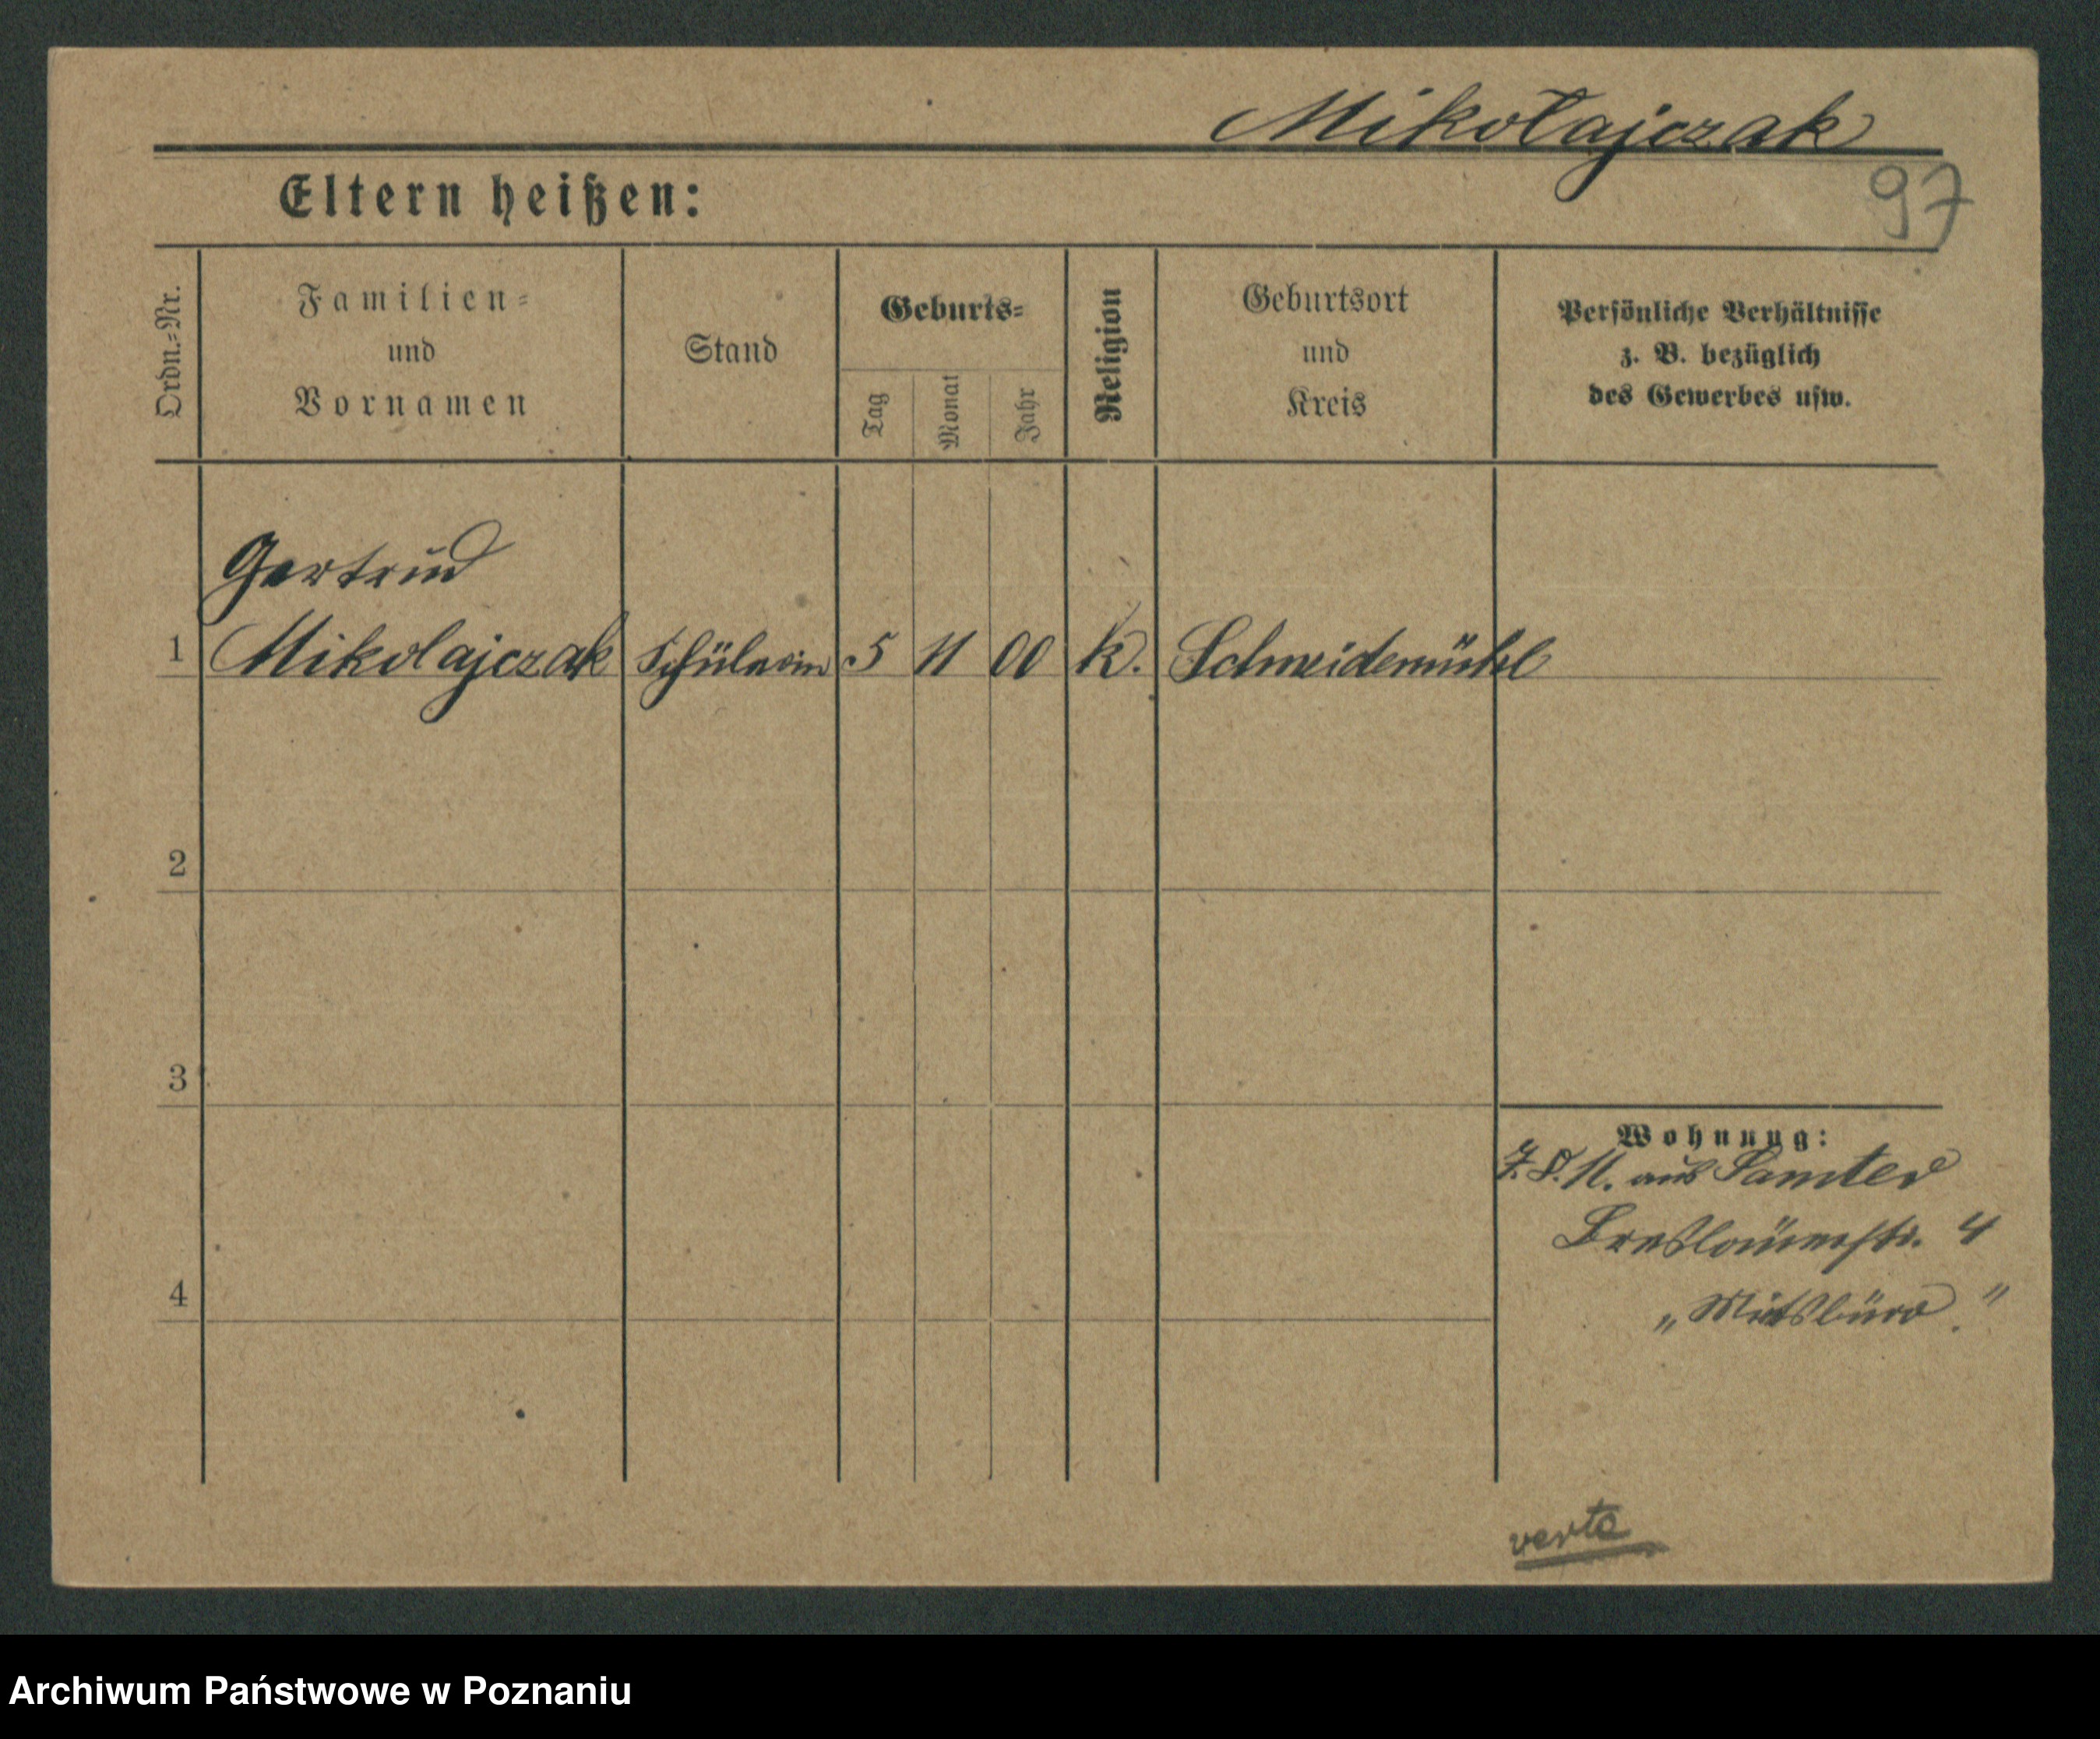 Mikołajczak
97
Eltern heißen:
Ordn.-Nr.
Familien-
und
Vornamen
Stand
Geburts-
Tag
Monat
Jahr
Religion
Geburtsort
und
Kreis
Persönliche Verhältnisse
z. B. bezüglich
des Gewerbes usw.
Gertrud
1 Mikolajczak Schülerin 5 11 00 k. Schneidemühl
2
3
4
Wohnung:
7.8.11. aus Samter
Breslauerstr. 4
„Mietsbüro."
verte
Archiwum Państwowe w Poznaniu